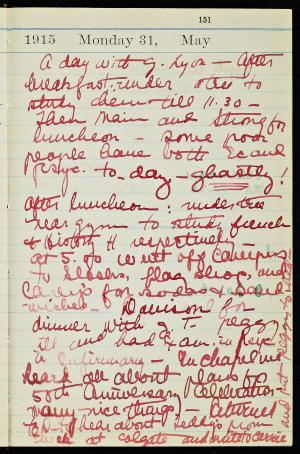 151
1915 Monday 31, May
A day with G. Lyon - After
breakfast, under trees to
study chem till 11.30 -
Then Main and Strong for
luncheon - some poor
people have both Ec and
Psyc. to-day - ghastly!
After luncheon: under tree
near gym to study french
& History H respectively -
at 5.00 went off campus
to stores, flag shop, and
for sodas & sand
wiches - Davison for
dinner with - Peggy
ill and had Exam. in Psyc
in infirmary - In chapel we
heard all about plans for
50th Anniversary Celebration -
many nice things) - Returned
to hear about Teddy's prom
at Colgate and write to Carrie
and put Peggy to bed -